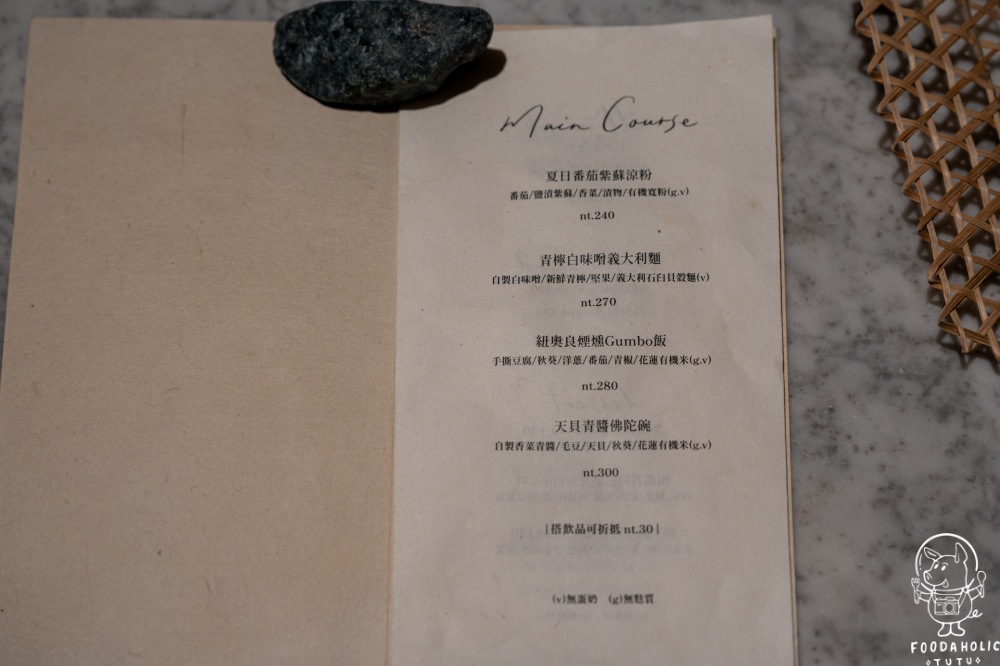 Main Course
夏日番茄紫蘇涼粉
番茄/鹽漬紫蘇/香菜/漬物/有機寬粉(g.v)
nt.240
青檸白味噌義大利麵
自製白味噌/新鮮青檸/堅果/義大利石臼貝殼麵(v)
nt.270
紐奧良煙燻Gumbo飯
手撕豆腐/秋葵/洋蔥/番茄/青椒/花蓮有機米(g.v)
nt.280
天貝青醬佛陀碗
自製香菜青醬/毛豆/天貝/秋葵/花蓮有機米(g.v)
nt.300
|搭飲品可折抵 nt.30|
(v)無蛋奶 (g)無麩質
FOODAHOLIC
TUTU